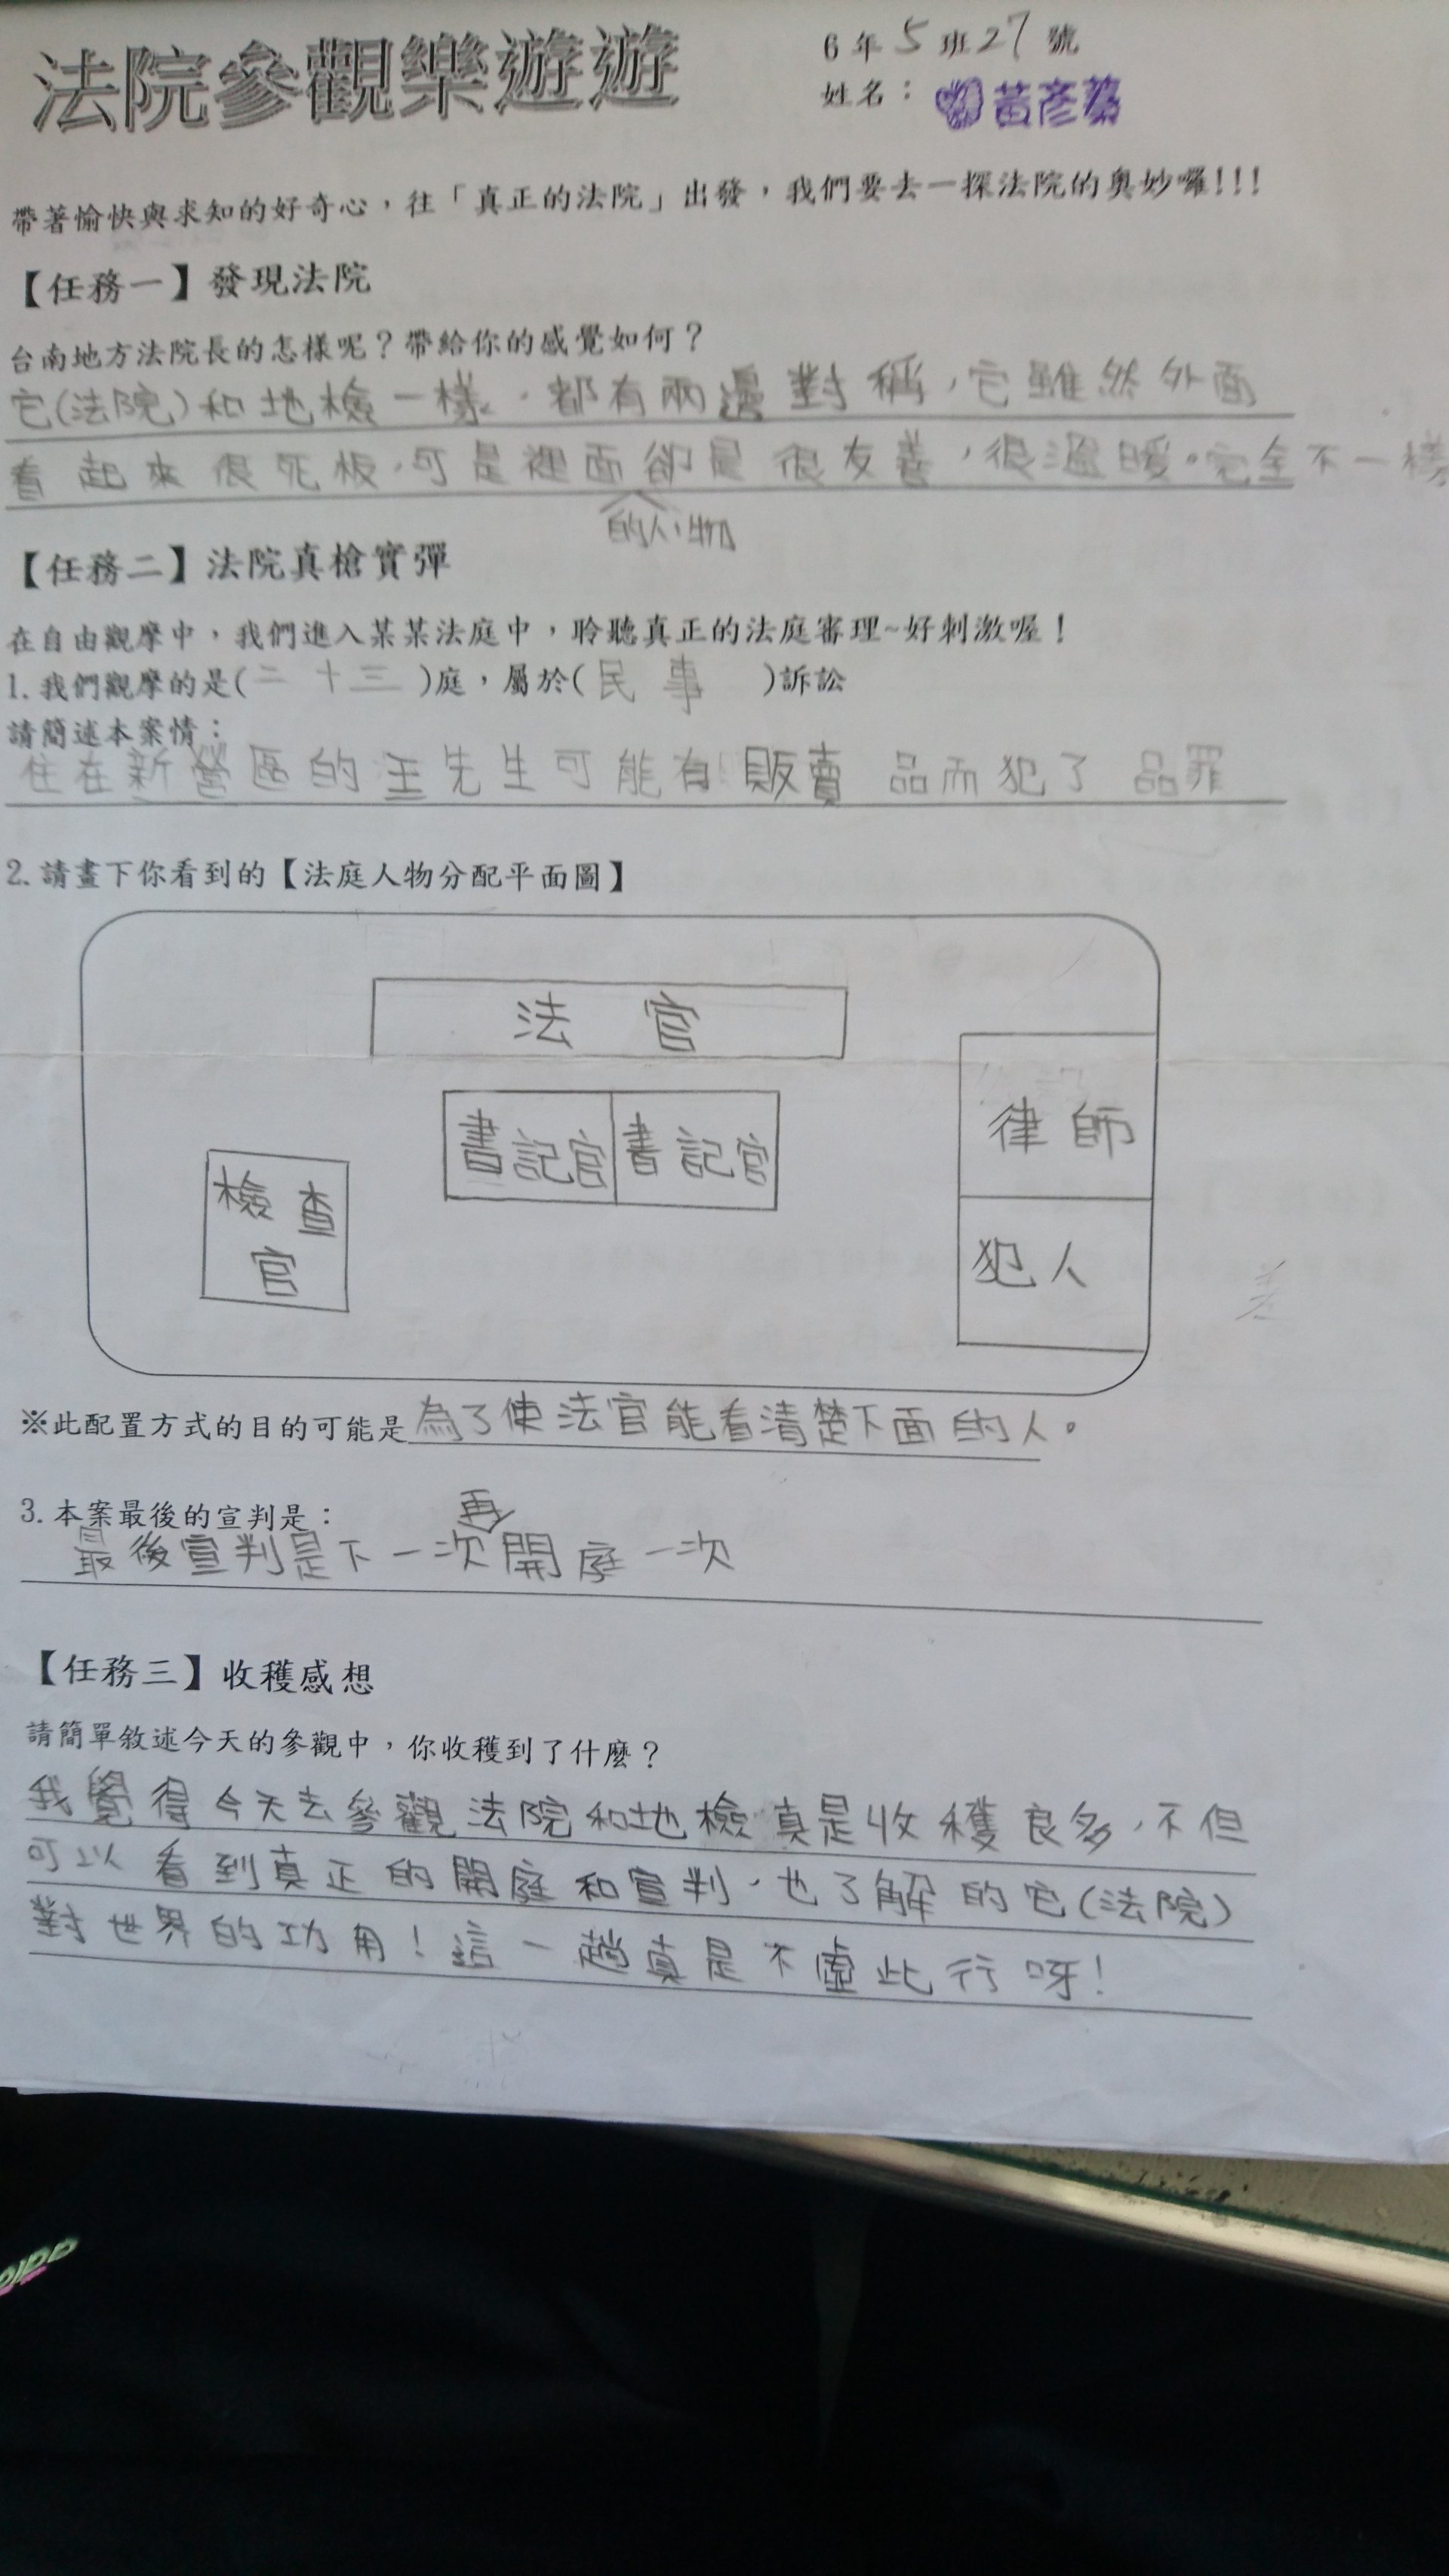 法院參觀樂遊遊
6年5班27號
姓名：黃彥
帶著愉快與求知的好奇心，往「真正的法院」出發，我們要去一探法院的奧妙囉!!!
【任務一】發現法院
台南地方法院長的怎樣呢？帶給你的感覺如何？
它(法院)和地檢一樣，都有兩邊對稱，它雖然外面
看起來很死板，可是裡面卻是很友善，很溫暖。完全不一樣
的人、物
【任務二】法院真槍實彈
在自由觀摩中，我們進入某某法庭中，聆聽真正的法庭審理~好刺激喔！
1.我們觀摩的是(二十三)庭，屬於(民事)訴訟
請簡述本案情：
住在新營區的王先生可能有販賣 品而犯了 品罪
2.請畫下你看到的【法庭人物分配平面圖】
法官
書記官 書記官
律師
檢查
官
犯人
※此配置方式的目的可能是為了使法官能看清楚下面的人。
3.本案最後的宣判是：
再
最後宣判是下一次開庭一次
【任務三】收穫感想
請簡單敘述今天的參觀中，你收穫到了什麼？
我覺得今天去參觀法院和地檢真是收穫良多，不但
可以看到真正的開庭和宣判，也了解的它(法院)
對世界的功用！這一趟真是不虛此行呀！